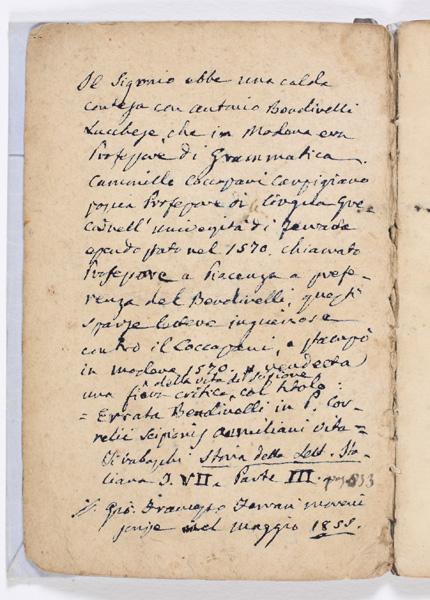 Il Sigonio ebbe una calda
contesa con Antonio Bendinelli
Lucchese, che in Modena era
Professore di Grammatica.
Cammillo Coccapani Carpigiano
Professore di Lingua Gre-
ca nell' università di
essendo stato nel 1570. chiamato
Professore a Piacenza a prefe-
renza del Bendinelli, questi
sparse lettere ingiuriose
contro il Coccapani, e stampò
in Modena 1570. vendetta
della vita di Scipione
una fiera critica col titolo:
= Errata Bendinelli in P. Cor-
nelii Scipionis Aemiliani vita =
Tiraboschi Storia della Lett. Ita-
liana T. VII. Parte III. pag
Francesco Ferrari
nel maggio 1855.